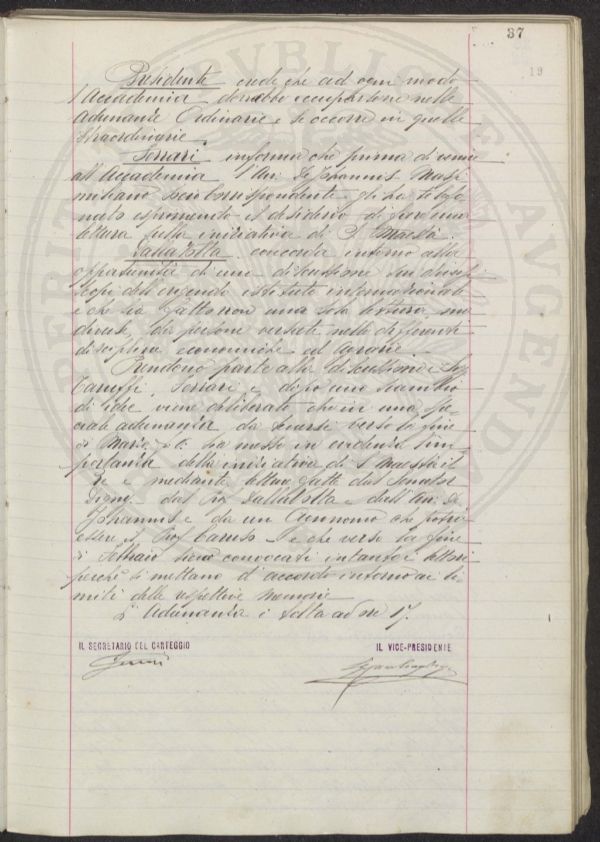 37
19
Presidente crede che ad ogni modo
l'Accademia dovrebbe occuparsene nelle
adunanze Ordinarie e se occorre in quelle
straordinarie.
Ferrari informa che prima di venire
all'Accademia l'On. De Johannis
socio corrispondente gli ha
esprimendo il desiderio di fare una
lettura sulla iniziativa di S. Maestà.
Dalla Volta concorda intorno alla
opportunità di una discussione sui diversi
scopi dell'erigendo istituto internazionale
e che sia fatto non una sola lettura, ma
diverse, da persone versate nelle differenti
discipline economiche ed agrarie.
Prendono parte alla discussione i Sigg.
Caruffi, Ferrari e dopo uno scambio
di idee viene deliberato che in una spe-
ciale adunanza da tenersi verso la fine
di Marzo p.v. sia messo in evidenza l'im-
portanza della iniziativa di S. Maestà il
Re e mediante letture fatte dal Senator
dal Prof. Dalla Volta e dall'On. De
Johannis e da un Agronomo che potrà
essere il Prof. Caruso. E che verso la fine
di Febbraio siano convocati intanto i lettori
perché si mettano d'accordo intorno ai li-
miti delle rispettive memorie.
L'Adunanza è sciolta ad ore 17.
IL SEGRETARIO DEL CARTEGGIO IL VICE-PRESIDENTE